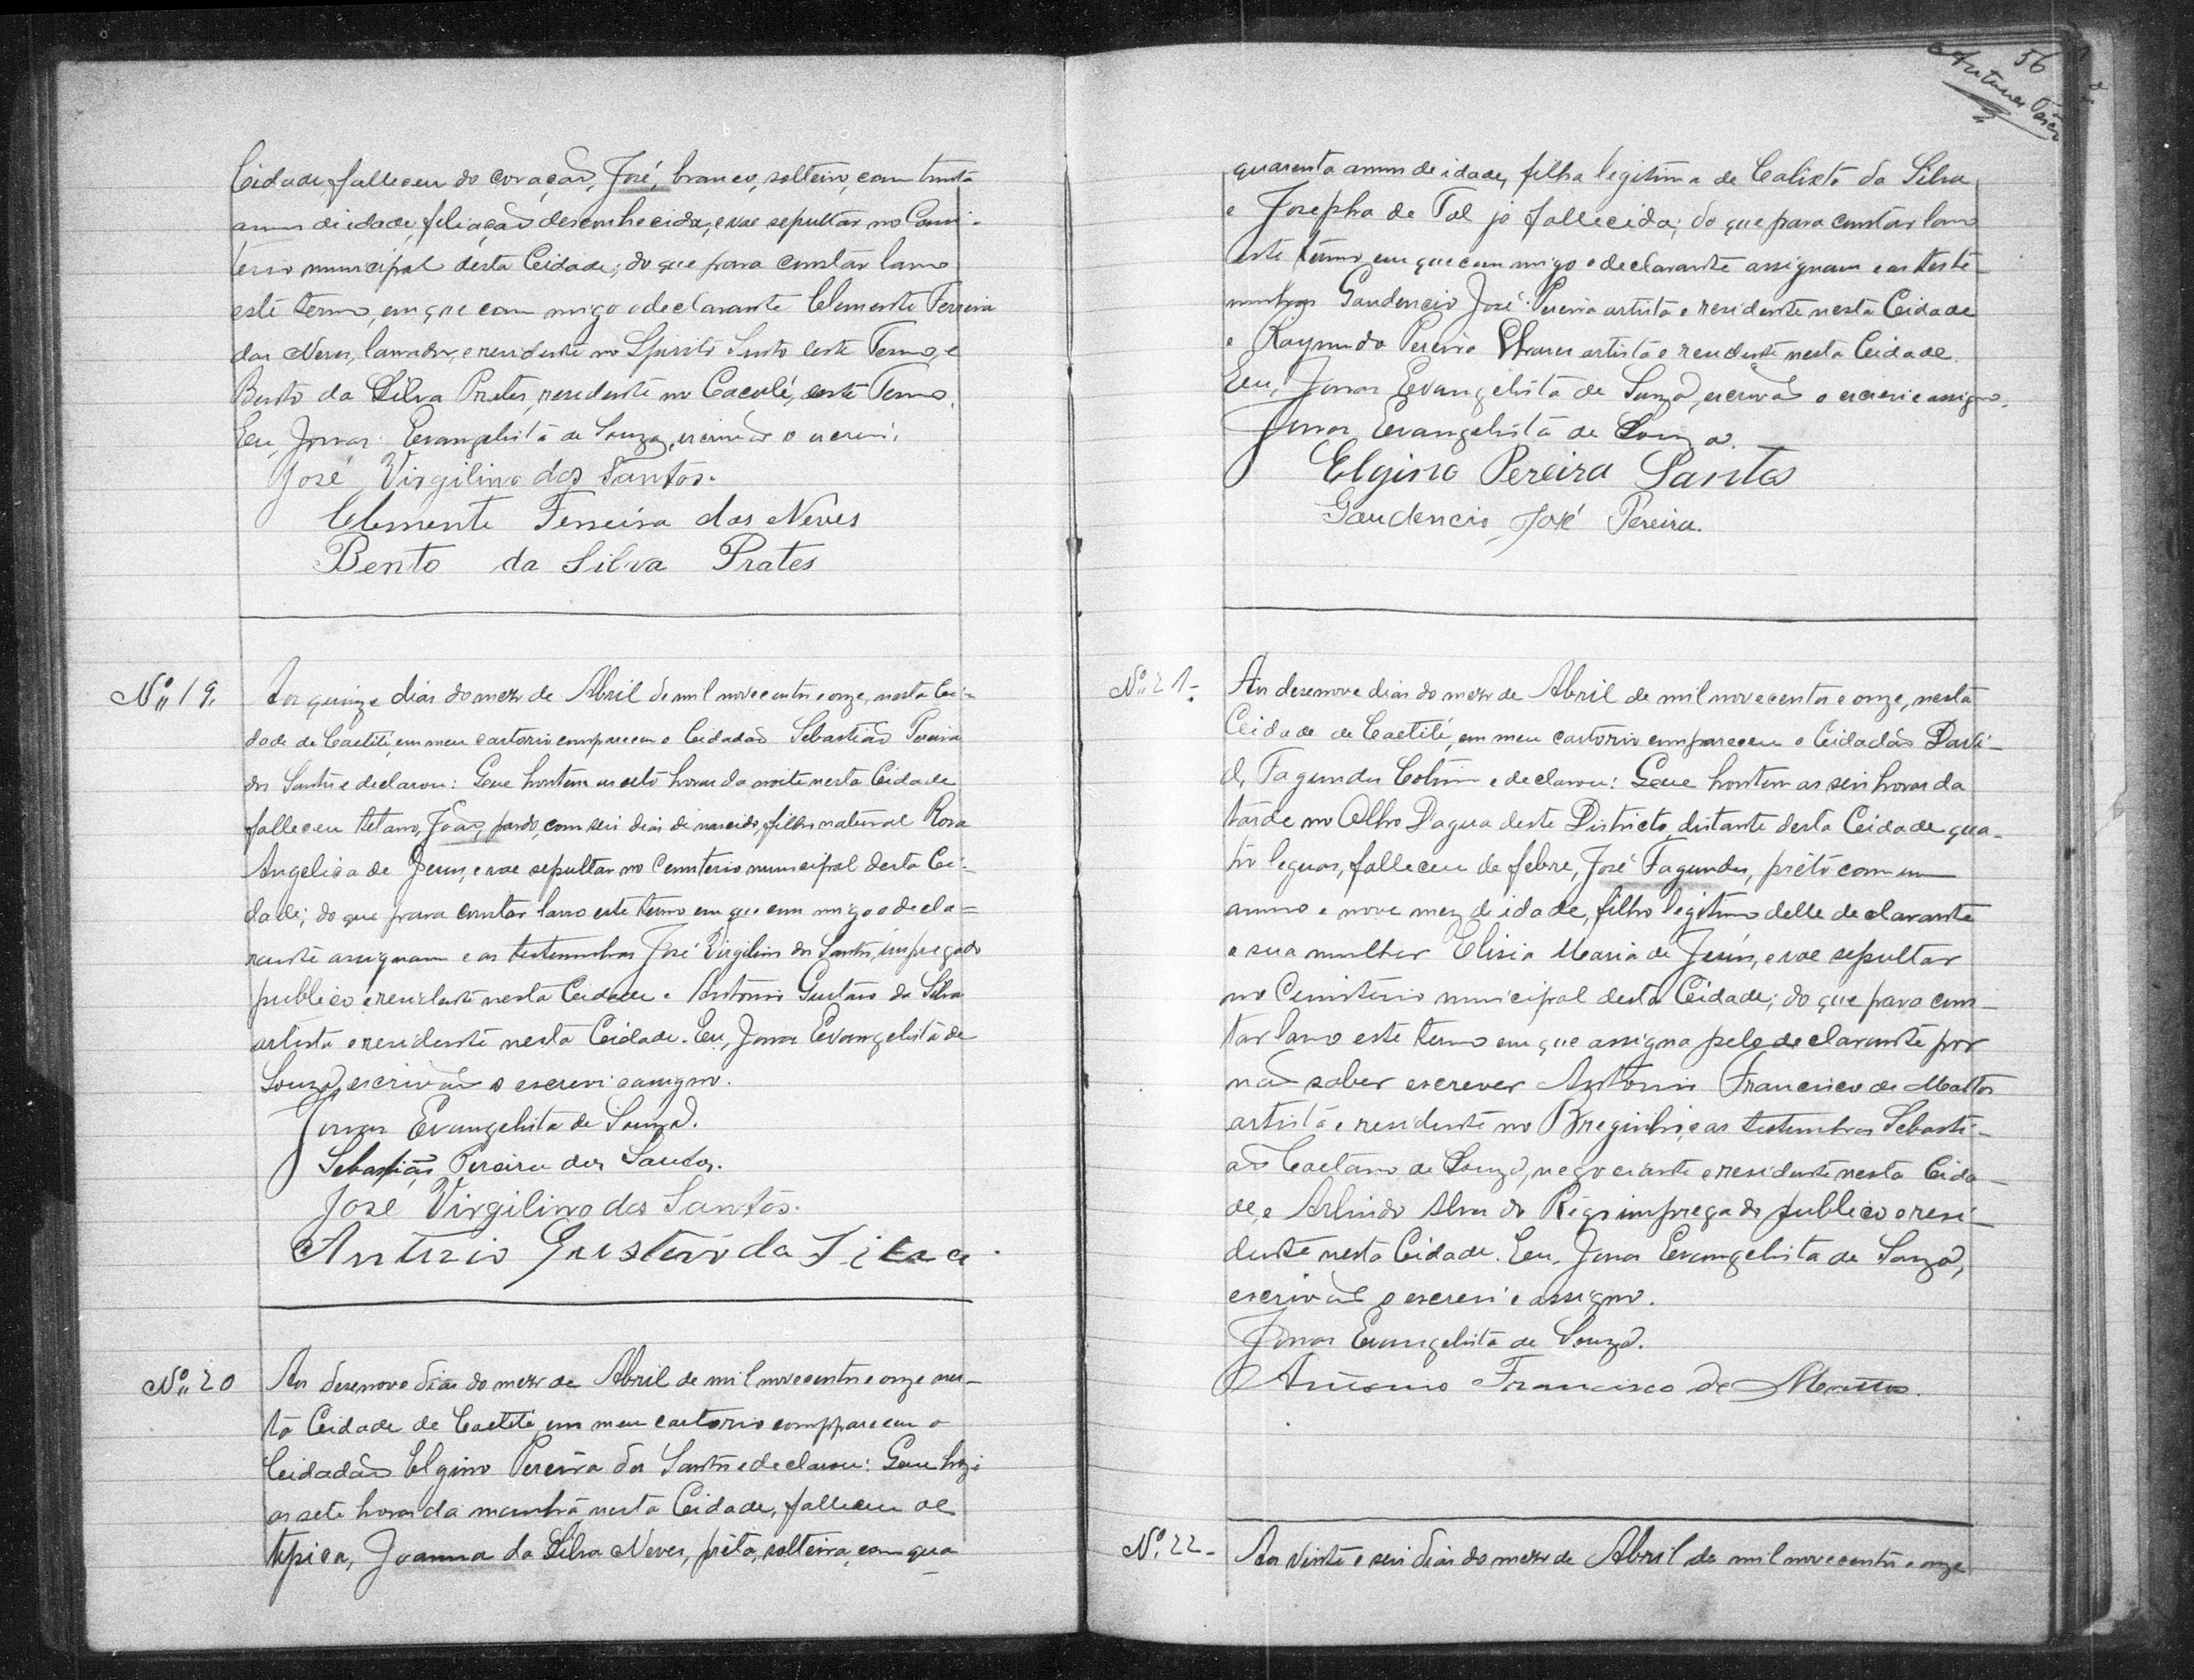 Cidade, falleceu do coração, José, branco, solteiro, com trinta
annos de idade, filiação desconhecida, e vae sepultar no Cemi-
terio municipal desta Cidade; do que para constar lavro
este termo, em que com migo o declarante Clemente Ferreira
das Neves, lavrador, e residente no Spirito Santo deste Termo, e
Bento da Silva Prates, residente no Caculé, deste Termo.
Eu, Jonas Evangelista de Souza, escrivão o escrevi.
José Virgilino dos Santos.
Clemente Ferreira das Neves
Bento da Silva Prates
Nº 19.
Aos quinze dias do mez de Abril de mil novecentos e onze, nesta Ci-
dade de Caetité, em meu cartorio compareceu o Cidadão Sebastião Pereira
dos Santos e declarou: Que hontem as oito horas da noite nesta Cidade
falleceu tetano, João, pardo, com seis dias de nascido, filho natural Rosa
Angelica de Jesus, e vae sepultar no Cemiterio municipal desta Ci-
dade; do que para constar lavro este termo em que com migo o decla=
rante assignam e as testemunhas José Virgilino dos Santos, impregado
publico e residente nesta Cidade e Antonio Gustavo da Silva
artista e residente nesta Cidade. Eu, Jonas Evangelista de
Souza, escrivão o escrevi e assigno.
Jonas Evangelista de Souza.
Sebastião Pereira dos Santos.
José Virgilino dos Santos.
Antonio Gustavo da Silva
Nº 20
Aos desenove dias do mez de Abril de mil novecentos e onze nes-
ta Cidade de Caetité em meu cartorio comppareceu o
Cidadão Elgino Pereira dos Santos e declarou: Que hoje
as sete horas da manhã nesta Cidade, falleceu de
tipica, Joanna da Silva Neves, prêta, solteira, com qua
56
quarenta annos de idade, filha legitima de Calixto da Silva
e Josepha de Tal já fallecida; do que para constar lavro
este termo em que com migo o declarante assignam e as teste-
munhas Gaudencio José Pereira artista e residente nesta Cidade
e Raymundo Pereira artista e residente nesta Cidade.
Eu, Jonas Evangelista de Souza, escrivão o escrevi e assigno.
Jonas Evangelista de Souza.
Elgino Pereira Santos
Gaudencio José Pereira.
Nº 21.
Aos desenove dias do mez de Abril de mil novecentos e onze, nesta
Cidade de Caetité, em meu cartorio compareceu o Cidadão
Fagundes Cotrim e declarou: Que hontem as seis horas da
tarde no Olho Dagua deste Districto, distante desta Cidade qua-
tro leguas, falleceu de febre, José Fagundes, prêto com um
anno e nove mez de idade, filho legitimo delle declarante
e sua mulher Elisia Maria de Jesús, e vae sepultar
no Cemiterio municipal desta Cidade; do que para cons-
tar lavro este termo em que assigna pelo declarante por
não saber escrever Antonio Francisco de Mattos
artista e residente no Breginho, e as testemunhas Sebasti-
ão Caetano de Souza, negociante e residente nesta Cida-
de, e Arlindo Alves do Rêgo impregado publico e resi-
dente nesta Cidade. Eu, Jonas Evangelista de Souza,
escrivão o escrevi e assigno.
Jonas Evangelista de Souza.
Antonio Francisco de Mattos.
Nº 22-
Aos vinte e seis dias do mez de Abril de mil novecentos e onze